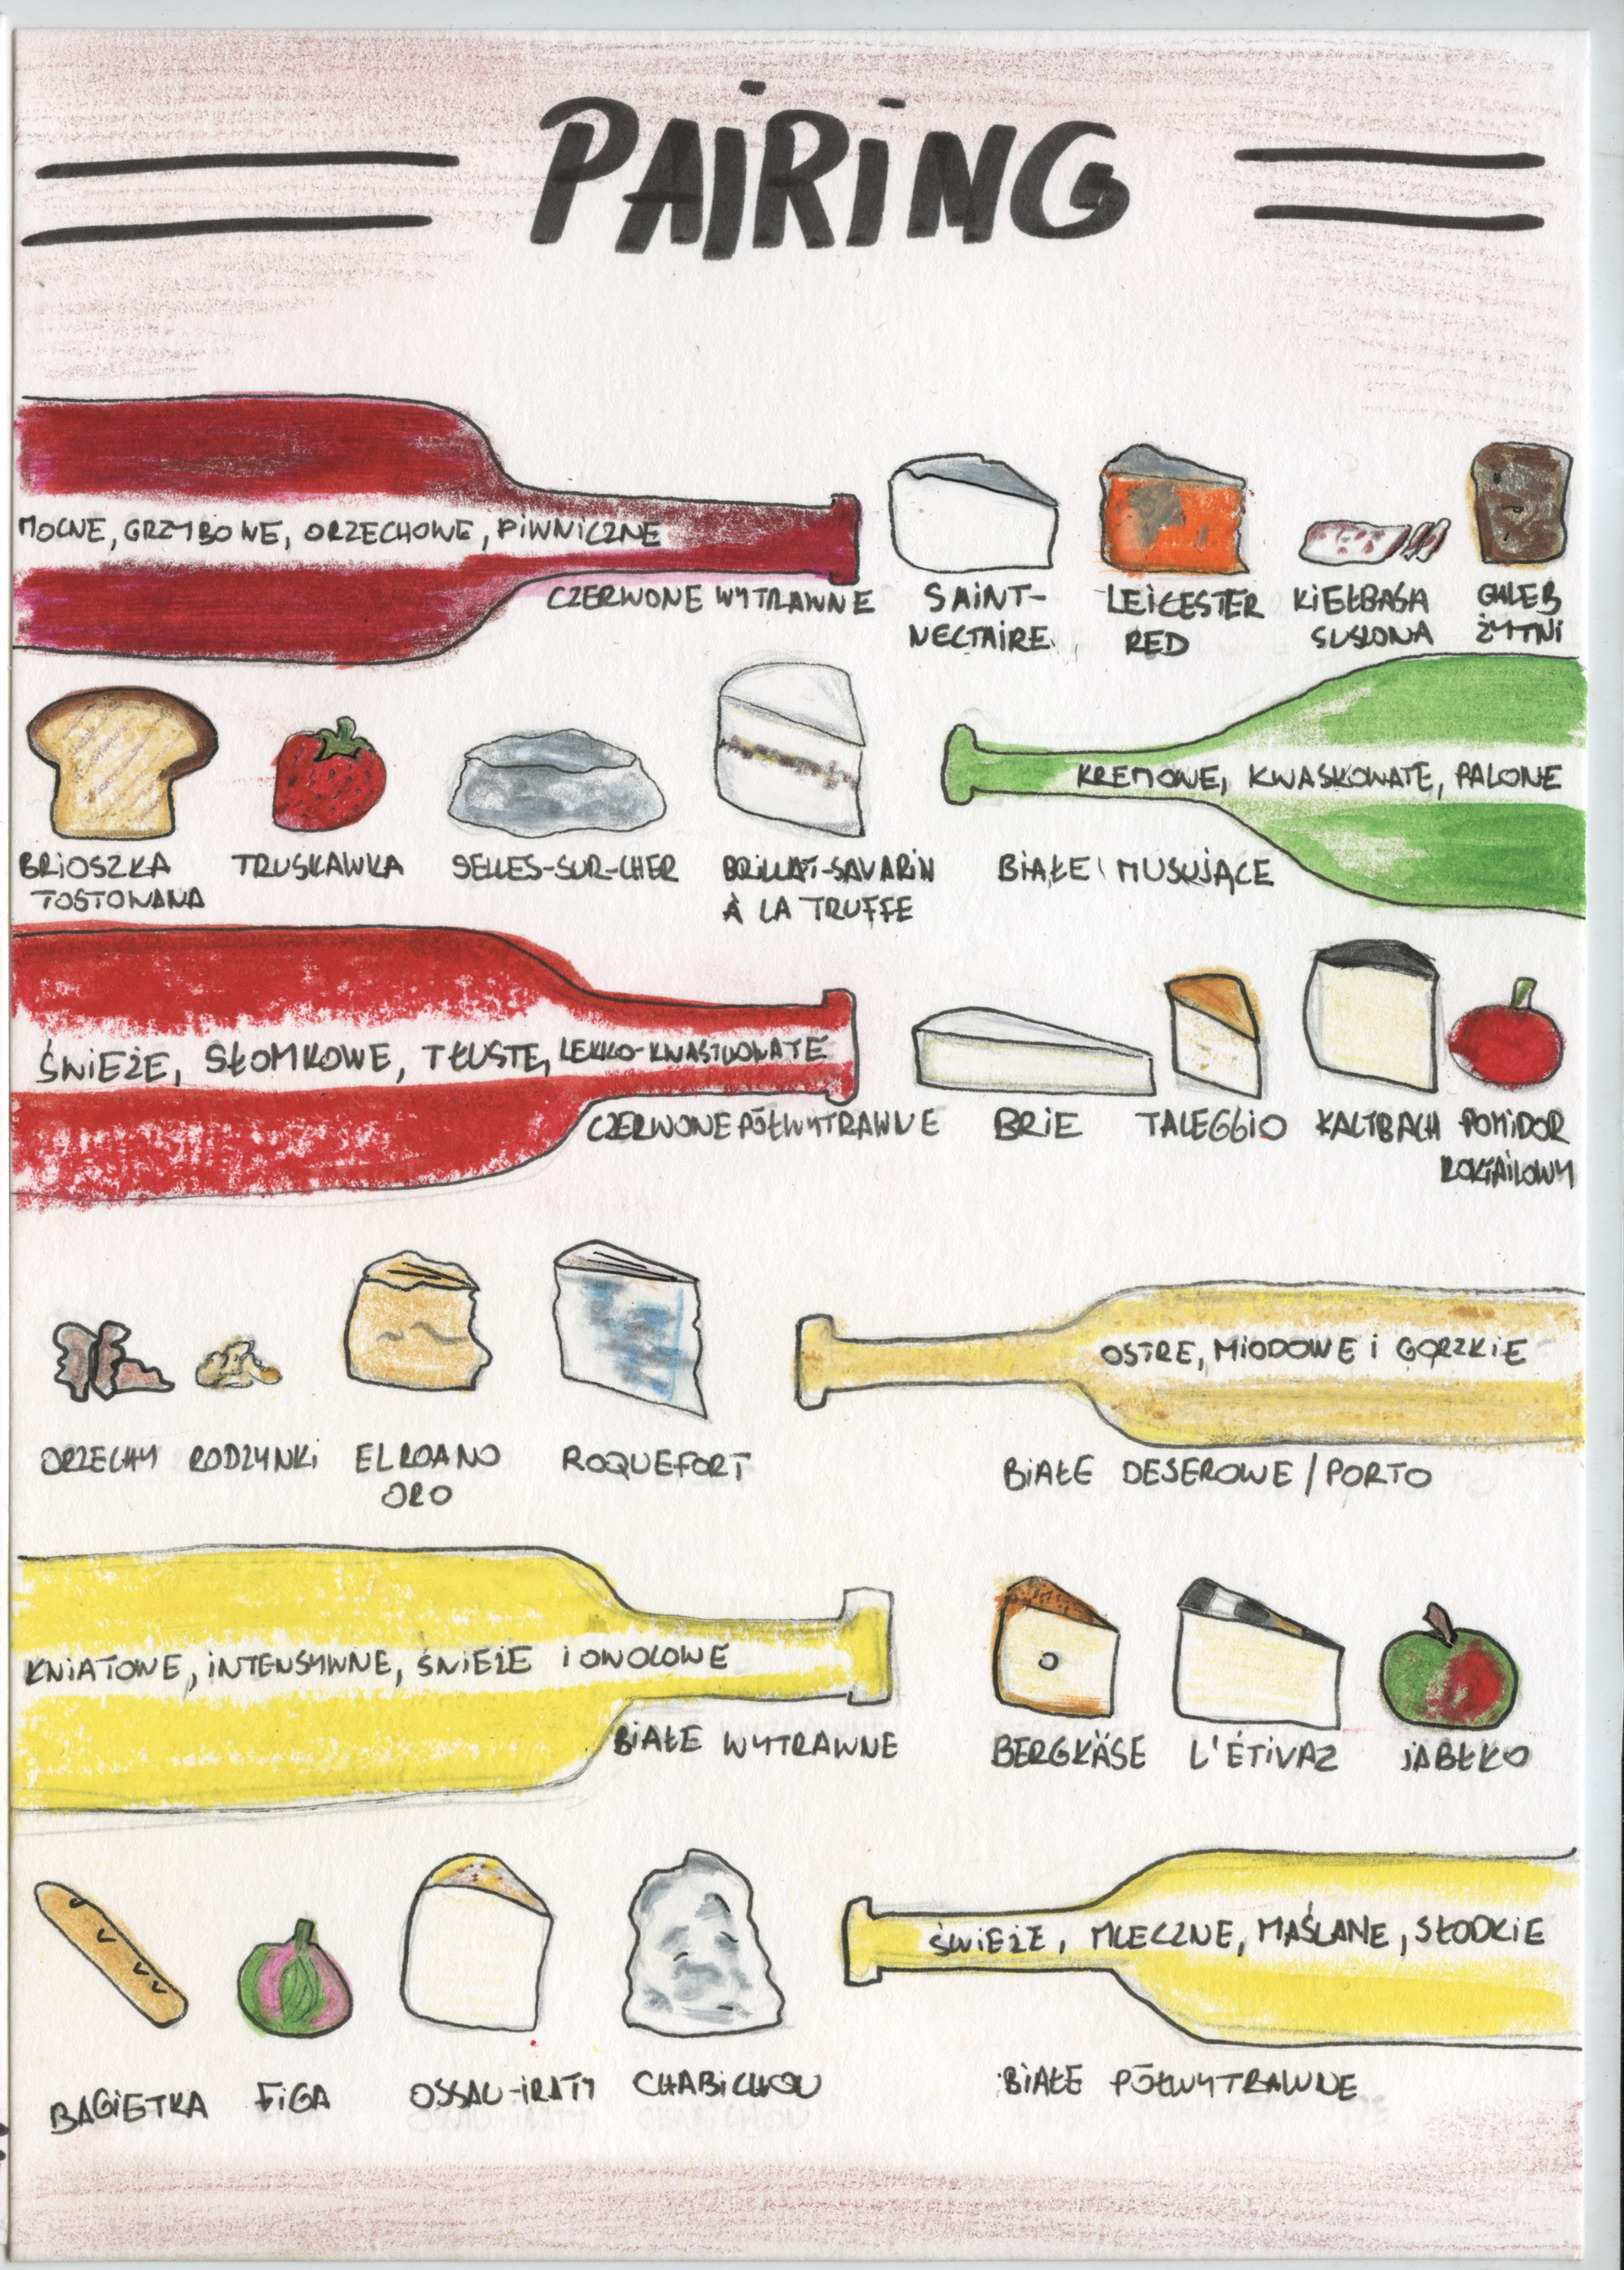 PAIRING
MOCNE, GRZYBOWE, ORZECHOWE, PIWNICZNE
CZERWONE WYTRAWNE
SAINT-
NECTAIRE
LEICESTER
RED
KIEŁBASA
SUSZONA
CHLEB
ŻYTNI
BRIOSZKA
TOSTOWANA
TRUSKAWKA
SELLES-SUR-CHER
BRILLAT-SAVARIN
À LA TRUFFE
KREMOWE, KWASKOWATE, PALONE
BIAŁE MUSUJĄCE
ŚWIEŻE, SŁOMKOWE, TŁUSTE, LEKKO-KWASKOWATE
CZERWONE PÓŁWYTRAWNE
BRIE
TALEGGIO
KALTBACH
POMIDOR
KOKTAILOWY
ORZECHY
RODZYNKI
EL ROANO
ORO
ROQUEFORT
OSTRE, MIODOWE I GORZKIE
BIAŁE DESEROWE / PORTO
KWIATOWE, INTENSYWNE, ŚWIEŻE I OWOCOWE
BIAŁE WYTRAWNE
BERGKÄSE
L'ÉTIVAZ
JABŁKO
BAGIETKA
FIGA
OSSAU-IRATY
CHABICHOU
ŚWIEŻE, MLECZNE, MAŚLANE, SŁODKIE
BIAŁE PÓŁWYTRAWNE